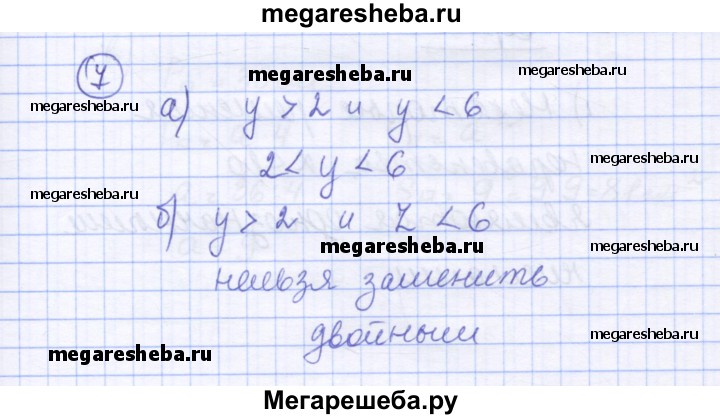 megaresheba.ru
7
megaresheba.ru
megaresheba.ru
megaresheba.ru
а) y > 2 и y < 6
megaresheba.ru
2 < y < 6
megaresheba.ru
б) y > 2 и z < 6
megaresheba.ru
нельзя заменить
двойным
megaresheba.ru
megaresheba.ru
Мегарешеба.ру